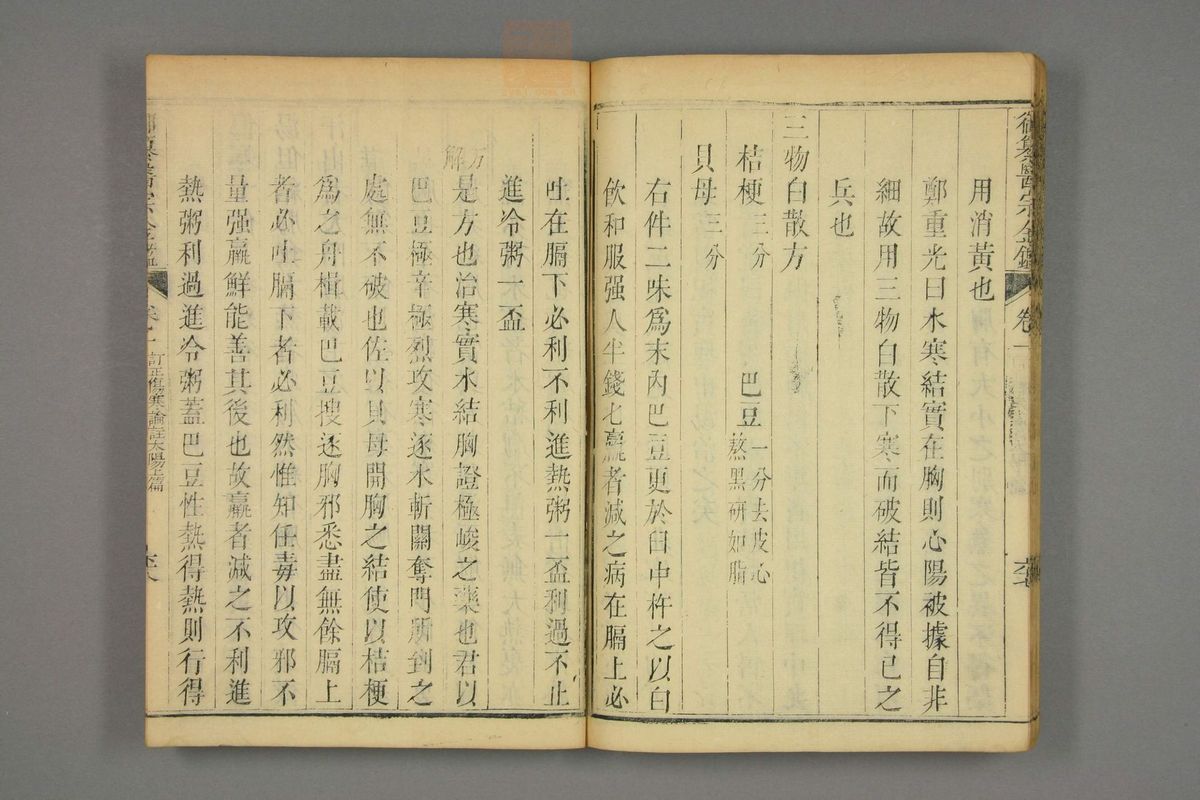 用消黃也
鄭重光曰水寒結實在胸則心陽被據自非
細故用三物白散下寒而破結皆不得已之
兵也
三物白散方
桔梗三分 巴豆一分去皮心熬黑研如脂
貝母三分
右件二味爲末內巴豆更於臼中杵之以白
飲和服强人半錢七羸者減之病在膈上必
吐在膈下必利不利進熱粥一盃利過不止
進冷粥一盃
方解
是方也治寒實水結胸證極峻之藥也君以
巴豆極辛極烈攻寒逐水斬關奪門所到之
處無不破也佐以貝母開胸之結使以桔梗
爲之舟楫載巴豆搜逐胸邪悉盡無餘膈上
者必吐膈下者必利然惟知任毒以攻邪不
量强羸鮮能善其後也故羸者減之不利進
熱粥利過進冷粥蓋巴豆性熱得熱則行得
御纂醫宗金鑑 卷一 訂正傷寒論註太陽上篇